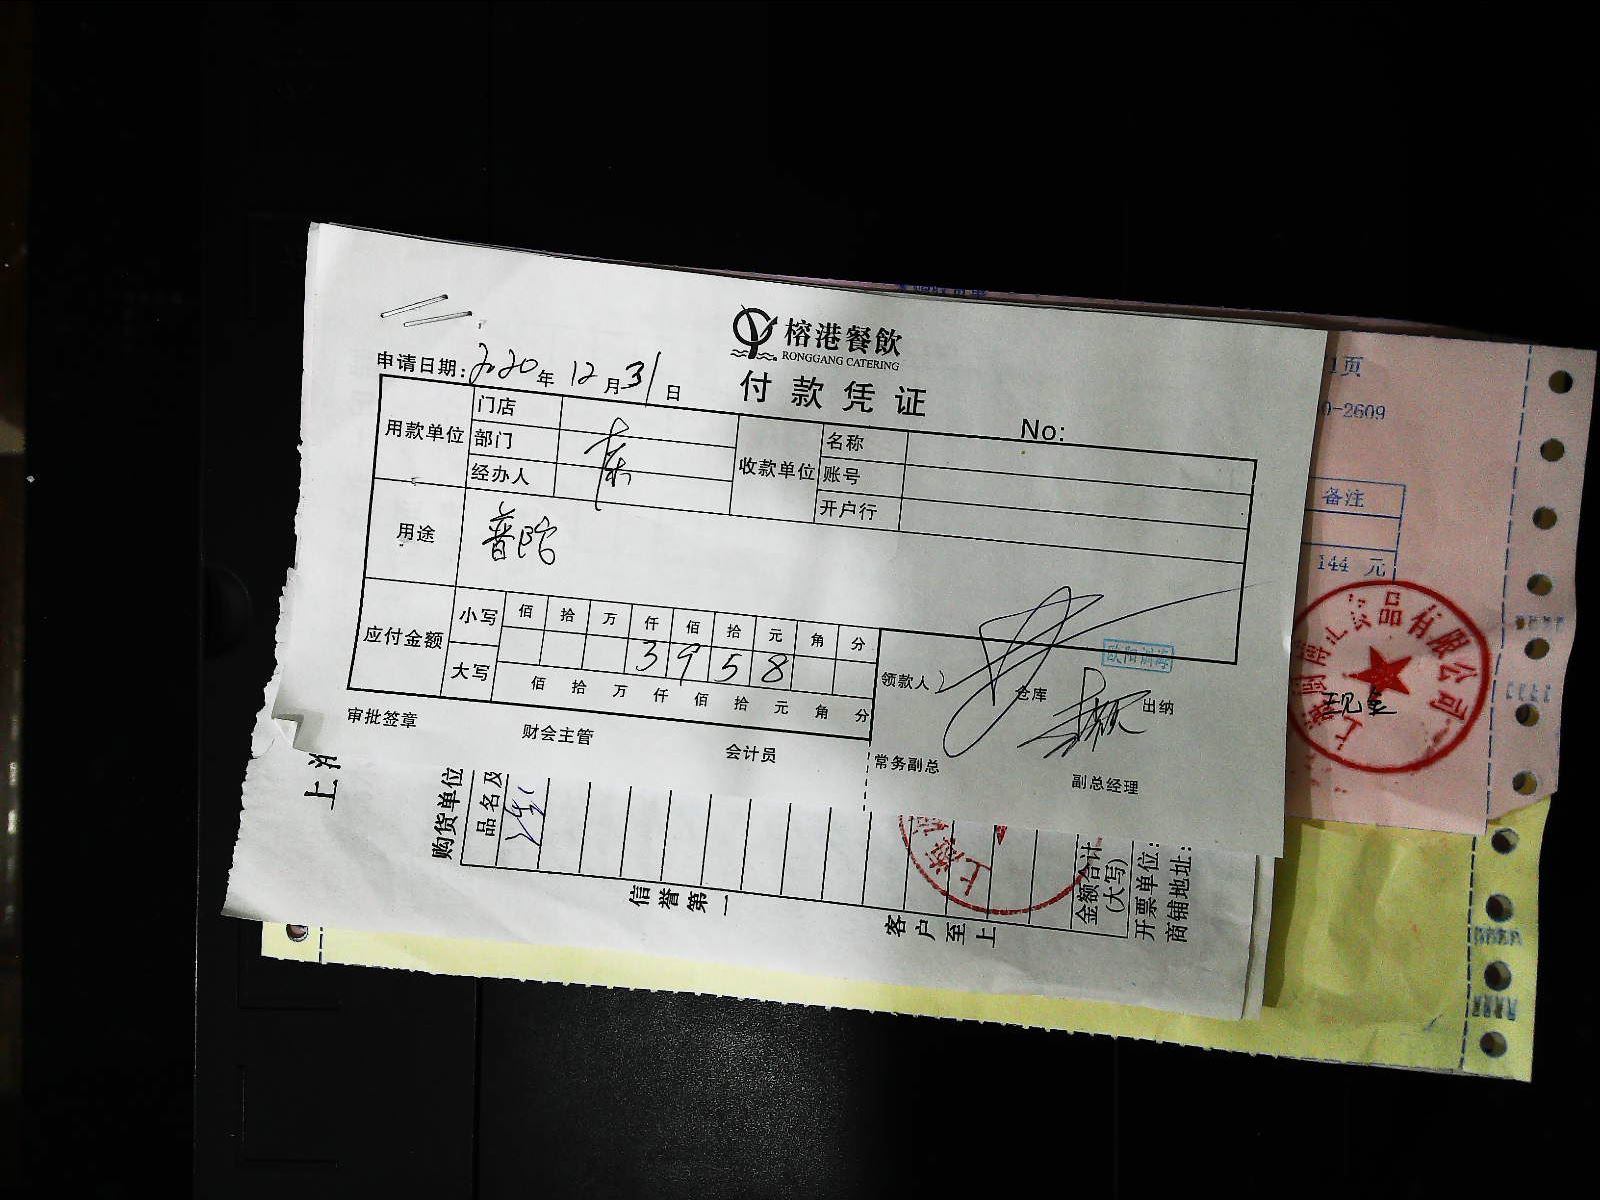 榕港餐飲
RONGGANG CATERING
付款凭证
申请日期: 2020年 12月31日
No:
用款单位 门店
部门
经办人
收款单位 名称
账号
开户行
用途 普陀
应付金额 小写 佰 拾 万 仟 佰 拾 元 角 分
3 9 5 8
大写 佰 拾 万 仟 佰 拾 元 角 分
领款人 仓库 出纳
审批签章 财会主管 会计员 常务副总 副总经理
1页
0-2609
备注
144 元
食品有限公司
现金
上海
购货单位
品名及
信誉第一
客户至上
金额合计
(大写)
开票单位:
商铺地址: